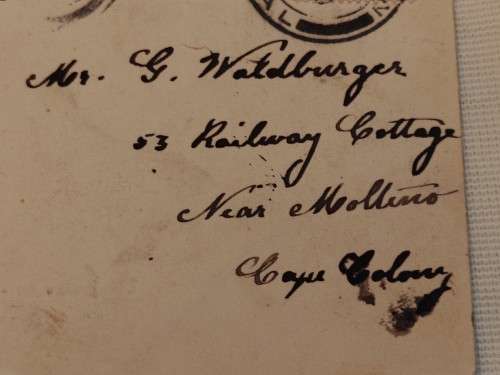 Mr. G. Waldburger
53 Railway Cottage
Near Molteno
Cape Colony